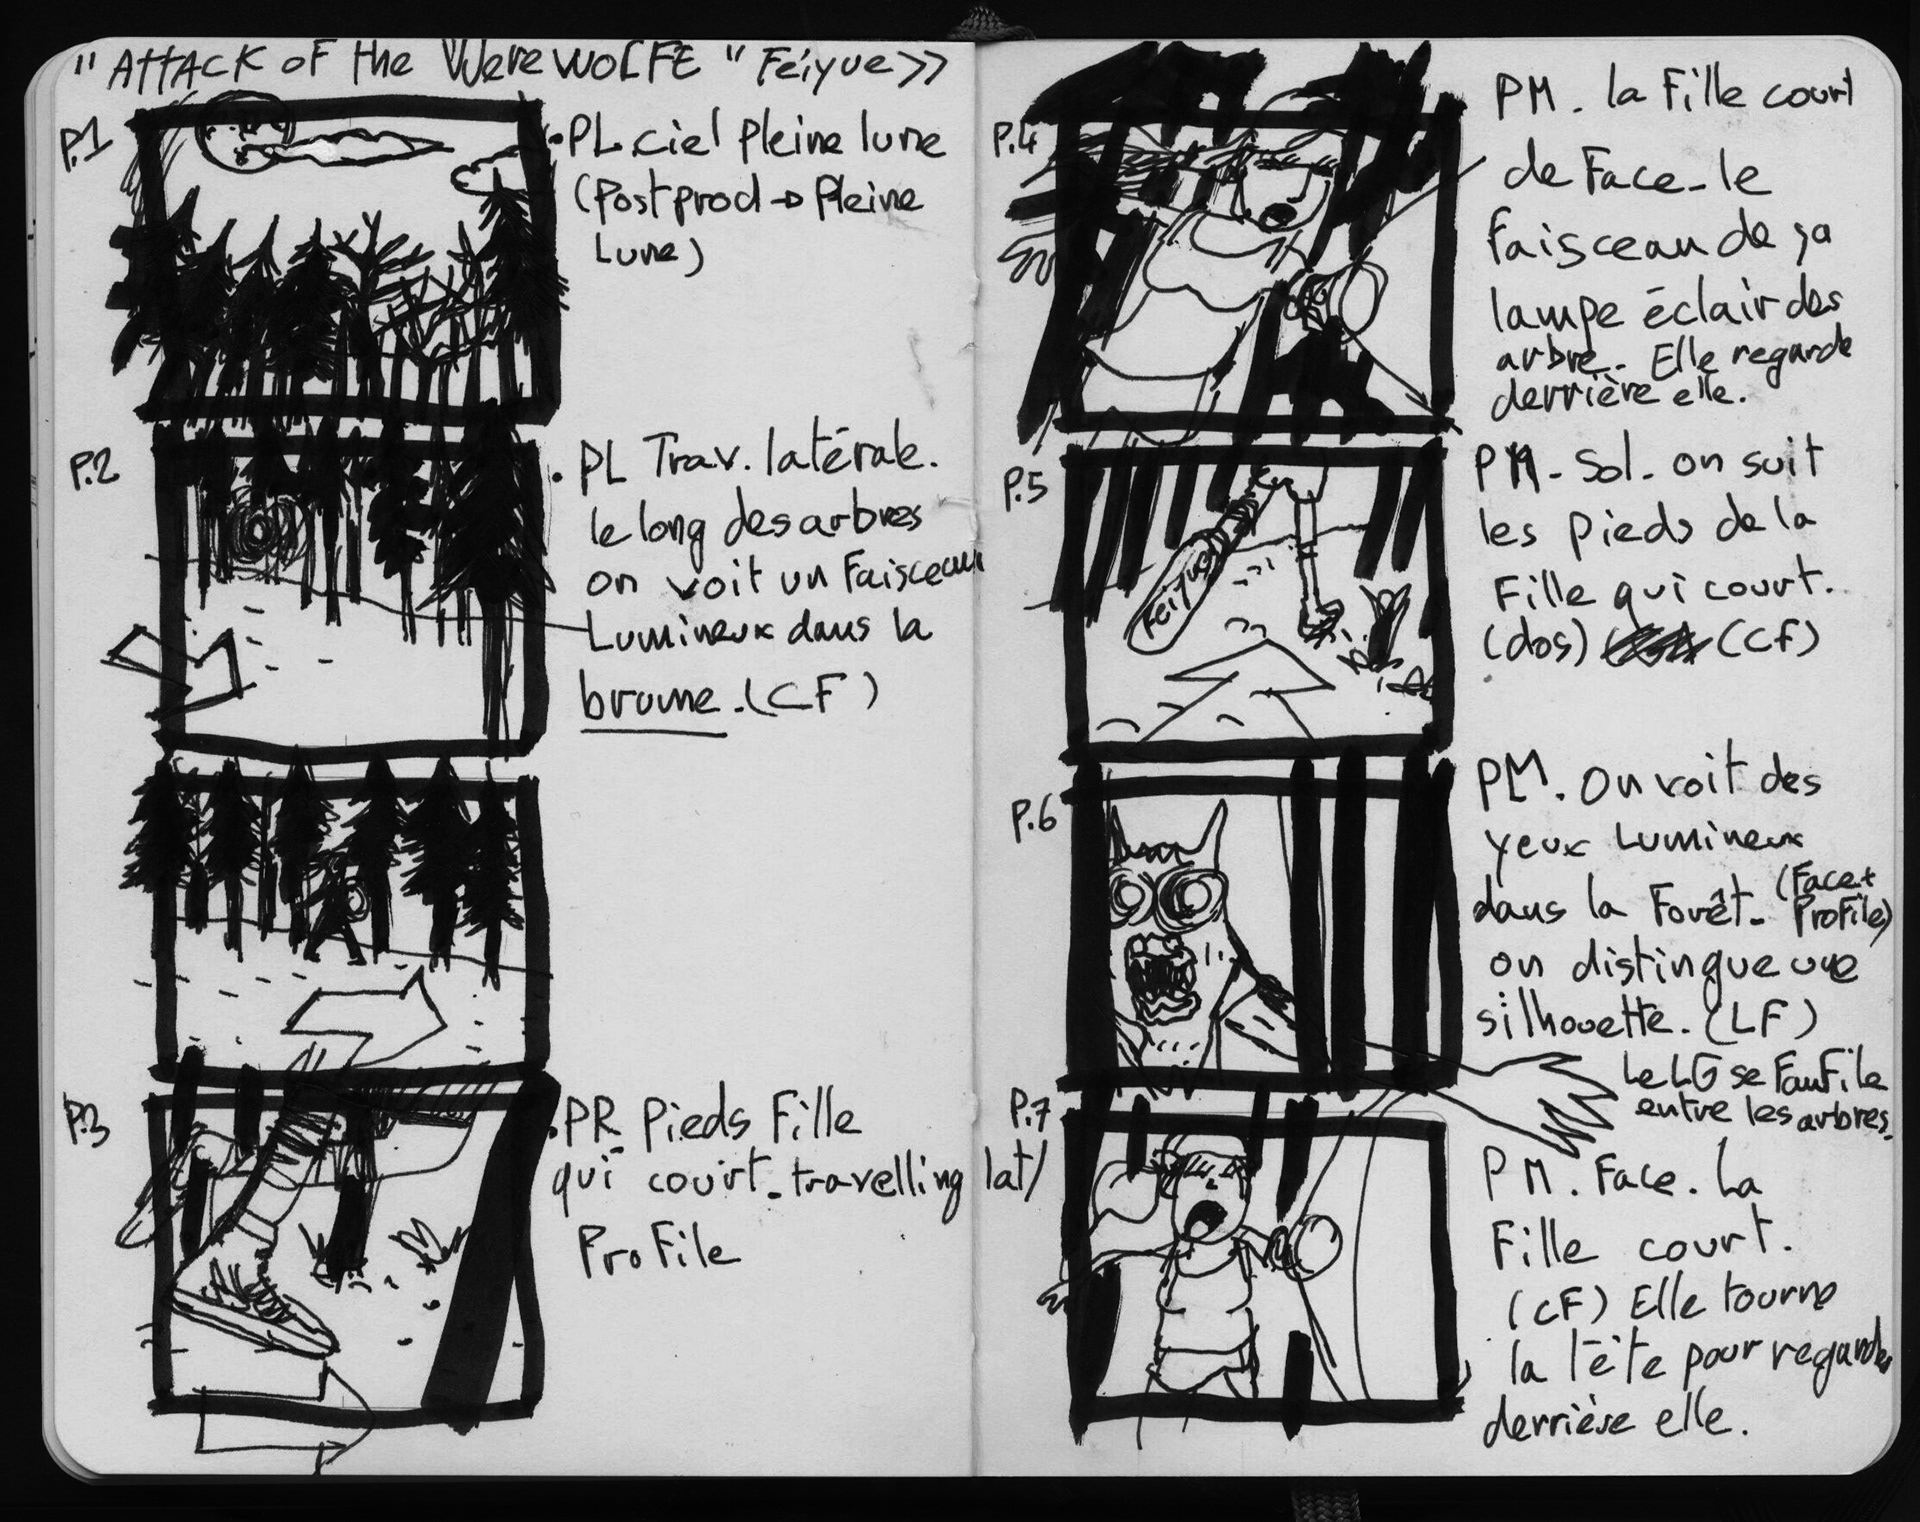 "ATTACK OF the WereWOLFE "Feiyue>>
P.1
• PL. ciel pleine lune
(Postprod → Pleine
Lune)
P.2
• PL Trav. latérale.
le long des arbres
on voit un Faisceau
Lumineux dans la
brume. (CF)
P.3
• PR Pieds Fille
qui court. travelling lat/
ProFile
P.4
PM. la Fille court
de Face - le
Faisceau de sa
lampe éclair des
arbre. Elle regarde
derrière elle.
P.5
Feiyue
PM - Sol. on suit
les pieds de la
Fille qui court.
(dos) (CF)
P.6
PM. On voit des
yeux Lumineux
dans la Forêt. (Face +
ProFile)
on distingue une
silhouette. (LF)
Le LG se FauFile
entre les arbres.
P.7
PM. Face. La
Fille court.
(CF) Elle tourne
la tête pour regarder
derrière elle.